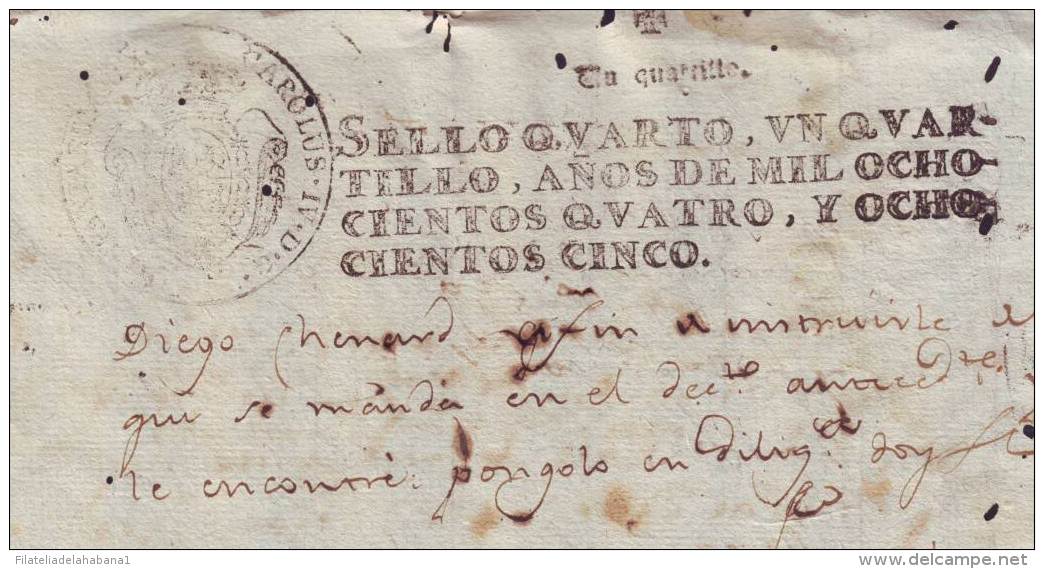 CAROLUS · IV · D · G ·
Un quartillo.
SELLO QVARTO, VN QVAR
TILLO, AÑOS DE MIL OCHO
CIENTOS QVATRO, Y OCHO
CIENTOS CINCO.
Diego Chenard afin a instruirle
que se manda en el dec.to anteced.te
le encontrè pongolo en dilig.a doy fe
Filateliadelahabana1
www.delcampe.net